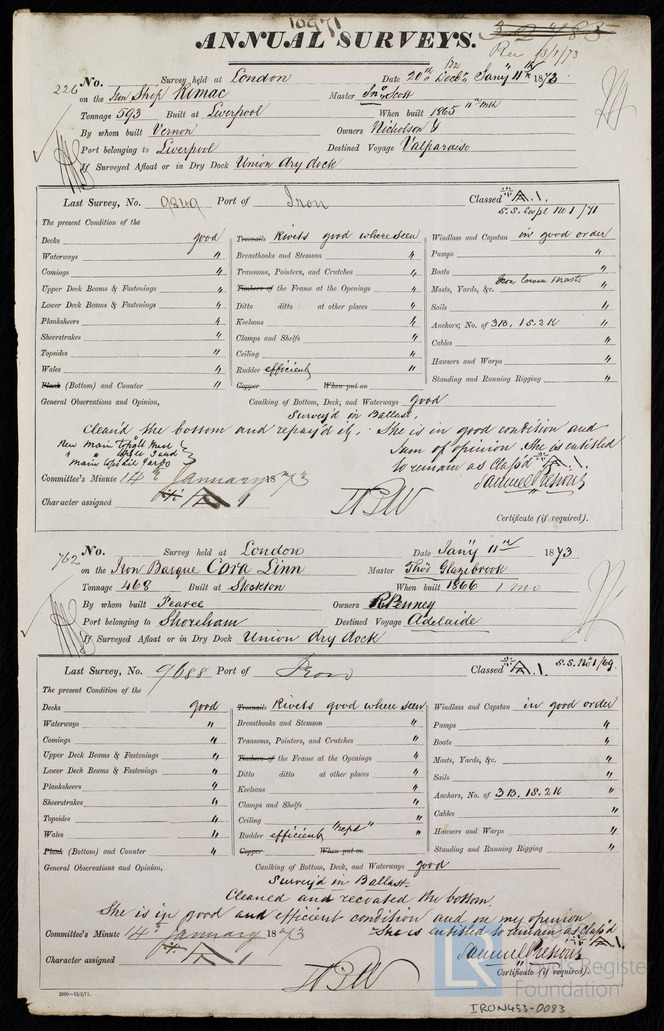 10971
ANNUAL SURVEYS.
Rec 13/1/73
226 No. Survey held at London Date 20th Decbr /72 Jany 11th 1873
on the Iron Ship Rimac Master Jno Scott
Tonnage 593 Built at Liverpool When built 1865 11 mth
By whom built Vernon Owners Nicholson
Port belonging to Liverpool Destined Voyage Valparaiso
If Surveyed Afloat or in Dry Dock Union dry dock
Last Survey, No. Port of Iron Classed A.1.
The present Condition of the
Decks good Treenails Rivets good where seen Windlass and Capstan in good order
Waterways " Breasthooks and Stemson " Pumps "
Comings " Transoms, Pointers, and Crutches " Boats "
Upper Deck Beams & Fastenings " Timbers of the Frame at the Openings " Masts, Yards, &c. Iron lower Masts "
Lower Deck Beams & Fastenings " Ditto ditto at other places " Sails "
Planksheers " Keelsons " Anchors, No. of 3B. 1S. 2K "
Sheerstrakes " Clamps and Shelfs " Cables "
Topsides " Ceiling " Hawsers and Warps "
Wales " Rudder efficient " Standing and Running Rigging "
Plank (Bottom) and Counter " Copper When put on
General Observations and Opinion, Caulking of Bottom, Deck, and Waterways good
Survey'd in Ballast.
Clean'd the bottom and repay'd it. She is in good condition and
New Main topgt Mast
Sum of opinion She is entitled
Main topsail Yard
to remain as Class'd A.1.
Committee's Minute 14th January 1873
Character assigned A 1
Certificate (if required).
762 No. Survey held at London Date Jany 11th 1873
on the Iron Barque Cora Linn Master Thos Glazebrook
Tonnage 468 Built at Stockton When built 1866 1 mo
By whom built Pearce Owners R Penney
Port belonging to Shoreham Destined Voyage Adelaide
If Surveyed Afloat or in Dry Dock Union dry dock
Last Survey, No. 9688 Port of Iron Classed A.1. S.S. No 1/69
The present Condition of the
Decks good Treenails Rivets good where seen Windlass and Capstan in good order
Waterways " Breasthooks and Stemson " Pumps "
Comings " Transoms, Pointers, and Crutches " Boats "
Upper Deck Beams & Fastenings " Timbers of the Frame at the Openings " Masts, Yards, &c. "
Lower Deck Beams & Fastenings " Ditto ditto at other places " Sails "
Planksheers " Keelsons " Anchors, No. of 3B. 1S. 2K "
Sheerstrakes " Clamps and Shelfs " Cables "
Topsides " Ceiling " Hawsers and Warps "
Wales " Rudder efficient " Standing and Running Rigging "
Plank (Bottom) and Counter " Copper When put on
General Observations and Opinion, Caulking of Bottom, Deck, and Waterways good
Survey'd in Ballast.
Cleaned and recoated the bottom.
She is in good and efficient condition and in my opinion
She is entitled to remain as Class'd
Committee's Minute 14th January 1873 A.1.
Character assigned A 1
Certificate (if required).
2000—13/2/71.
LR Lloyd's Register Foundation
IRON453-0083